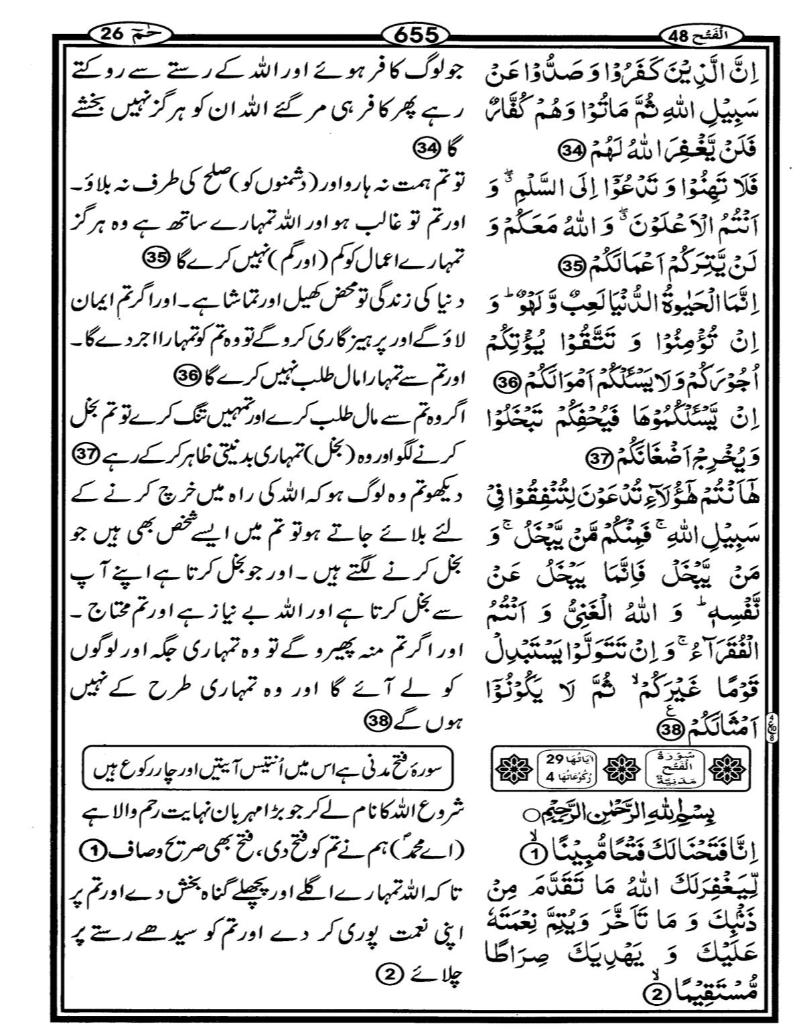 الفتح 48
655
حٰمٓ 26
اِنَّ الَّذِيْنَ كَفَرُوْا وَ صَدُّوْا عَنْ
سَبِيْلِ اللّٰهِ ثُمَّ مَاتُوْا وَهُمْ كُفَّارٌ
فَلَنْ يَّغْفِرَ اللّٰهُ لَهُمْ 34
فَلَا تَهِنُوْا وَ تَدْعُوْٓا اِلَى السَّلْمِ ۖ وَ
اَنْتُمُ الْاَعْلَوْنَ ۖ وَ اللّٰهُ مَعَكُمْ وَ
لَنْ يَّتِرَكُمْ اَعْمَالَكُمْ 35
اِنَّمَا الْحَيٰوةُ الدُّنْيَا لَعِبٌ وَّ لَهْوٌ ؕ وَ
اِنْ تُؤْمِنُوْا وَ تَتَّقُوْا يُؤْتِكُمْ
اُجُوْرَكُمْ وَ لَا يَسْـَٔلْكُمْ اَمْوَالَكُمْ 36
اِنْ يَّسْـَٔلْكُمُوْهَا فَيُحْفِكُمْ تَبْخَلُوْا
وَ يُخْرِجْ اَضْغَانَكُمْ 37
هٰۤاَنْتُمْ هٰۤؤُلَآءِ تُدْعَوْنَ لِتُنْفِقُوْا فِيْ
سَبِيْلِ اللّٰهِ ۚ فَمِنْكُمْ مَّنْ يَّبْخَلُ ۚ وَ
مَنْ يَّبْخَلْ فَاِنَّمَا يَبْخَلُ عَنْ
نَّفْسِهٖ ؕ وَ اللّٰهُ الْغَنِيُّ وَ اَنْتُمُ
الْفُقَرَآءُ ۚ وَ اِنْ تَتَوَلَّوْا يَسْتَبْدِلْ
قَوْمًا غَيْرَكُمْ ۙ ثُمَّ لَا يَكُوْنُوْٓا
اَمْثَالَكُمْ 38
سُوْرَةُ الْفَتْحِ مَدَنِيَّةٌ
اٰيَاتُهَا 29
رُكُوْعَاتُهَا 4
بِسْمِ اللّٰهِ الرَّحْمٰنِ الرَّحِيْمِ
اِنَّا فَتَحْنَا لَكَ فَتْحًا مُّبِيْنًا ۙ 1
لِّيَغْفِرَ لَكَ اللّٰهُ مَا تَقَدَّمَ مِنْ
ذَنْۢبِكَ وَ مَا تَاَخَّرَ وَ يُتِمَّ نِعْمَتَهٗ
عَلَيْكَ وَ يَهْدِيَكَ صِرَاطًا
مُّسْتَقِيْمًا ۙ 2
جو لوگ کافر ہوئے اور اللہ کے رستے سے روکتے
رہے پھر کافر ہی مر گئے اللہ ان کو ہرگز نہیں بخشے
گا 34
تو تم ہمت نہ ہارو اور (دشمنوں کو) صلح کی طرف نہ بلاؤ۔
اور تم تو غالب ہو اور اللہ تمہارے ساتھ ہے وہ ہرگز
تمہارے اعمال کو کم (اور گم) نہیں کرے گا 35
دنیا کی زندگی تو محض کھیل اور تماشا ہے۔ اور اگر تم ایمان
لاؤ گے اور پرہیز گاری کرو گے تو وہ تم کو تمہارا اجر دے گا۔
اور تم سے تمہارا مال طلب نہیں کرے گا 36
اگر وہ تم سے مال طلب کرے اور تمہیں تنگ کرے تو تم بخل
کرنے لگو اور وہ (بخل) تمہاری بدنیتی ظاہر کر کے رہے 37
دیکھو تم وہ لوگ ہو کہ اللہ کی راہ میں خرچ کرنے کے
لئے بلائے جاتے ہو تو تم میں ایسے شخص بھی ہیں جو
بخل کرنے لگتے ہیں۔ اور جو بخل کرتا ہے اپنے آپ
سے بخل کرتا ہے اور اللہ بے نیاز ہے اور تم محتاج۔
اور اگر تم منہ پھیرو گے تو وہ تمہاری جگہ اور لوگوں
کو لے آئے گا اور وہ تمہاری طرح کے نہیں
ہوں گے 38
سورۂ فتح مدنی ہے اس میں اُنتیس آیتیں اور چار رکوع ہیں
شروع اللہ کا نام لے کر جو بڑا مہربان نہایت رحم والا ہے
(اے محمدؐ) ہم نے تم کو فتح دی، فتح بھی صریح و صاف 1
تاکہ اللہ تمہارے اگلے اور پچھلے گناہ بخش دے اور تم پر
اپنی نعمت پوری کر دے اور تم کو سیدھے رستے پر
چلائے 2